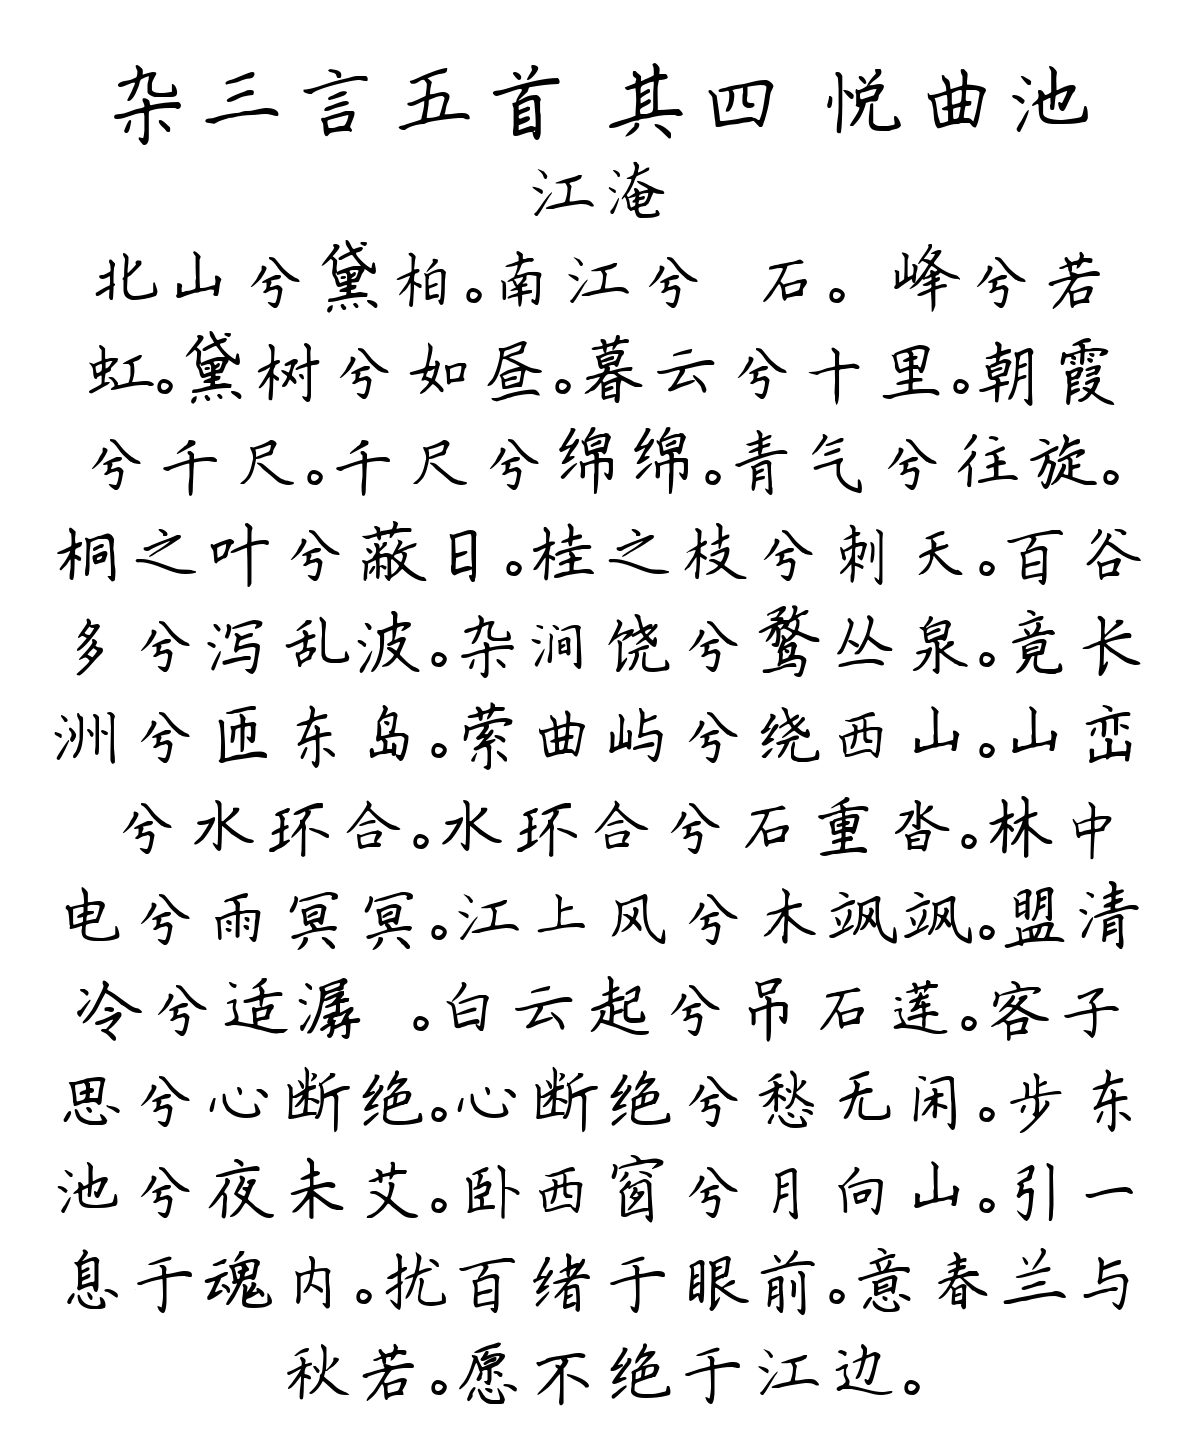 杂三言五首 其四 悦曲池
江淹
北山兮黛柏。南江兮 石。 峰兮若
虹。黛树兮如昼。暮云兮十里。朝霞
兮千尺。千尺兮绵绵。青气兮往旋。
桐之叶兮蔽日。桂之枝兮刺天。百谷
多兮泻乱波。杂涧饶兮鹜丛泉。竟长
洲兮匝东岛。萦曲屿兮绕西山。山峦
兮水环合。水环合兮石重沓。林中
电兮雨冥冥。江上风兮木飒飒。盟清
冷兮适潺 。白云起兮吊石莲。客子
思兮心断绝。心断绝兮愁无闲。步东
池兮夜未艾。卧西窗兮月向山。引一
息于魂内。扰百绪于眼前。意春兰与
秋若。愿不绝于江边。